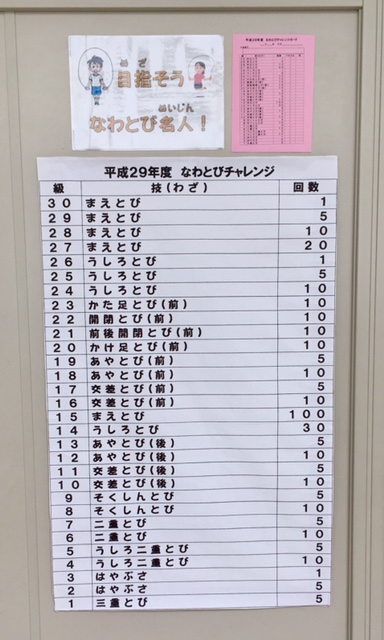 めざ
目指そう
めいじん
なわとび名人！
平成29年度 なわとびチャレンジカード
平成29年度 なわとびチャレンジ
級 技(わざ) 回数
30 まえとび 1
29 まえとび 5
28 まえとび 10
27 まえとび 20
26 うしろとび 1
25 うしろとび 5
24 うしろとび 10
23 かた足とび(前) 10
22 開閉とび(前) 10
21 前後開閉とび(前) 10
20 かけ足とび(前) 10
19 あやとび(前) 5
18 あやとび(前) 10
17 交差とび(前) 5
16 交差とび(前) 10
15 まえとび 100
14 うしろとび 30
13 あやとび(後) 5
12 あやとび(後) 10
11 交差とび(後) 5
10 交差とび(後) 10
9 そくしんとび 5
8 そくしんとび 10
7 二重とび 5
6 二重とび 10
5 うしろ二重とび 5
4 うしろ二重とび 10
3 はやぶさ 1
2 はやぶさ 5
1 三重とび 5